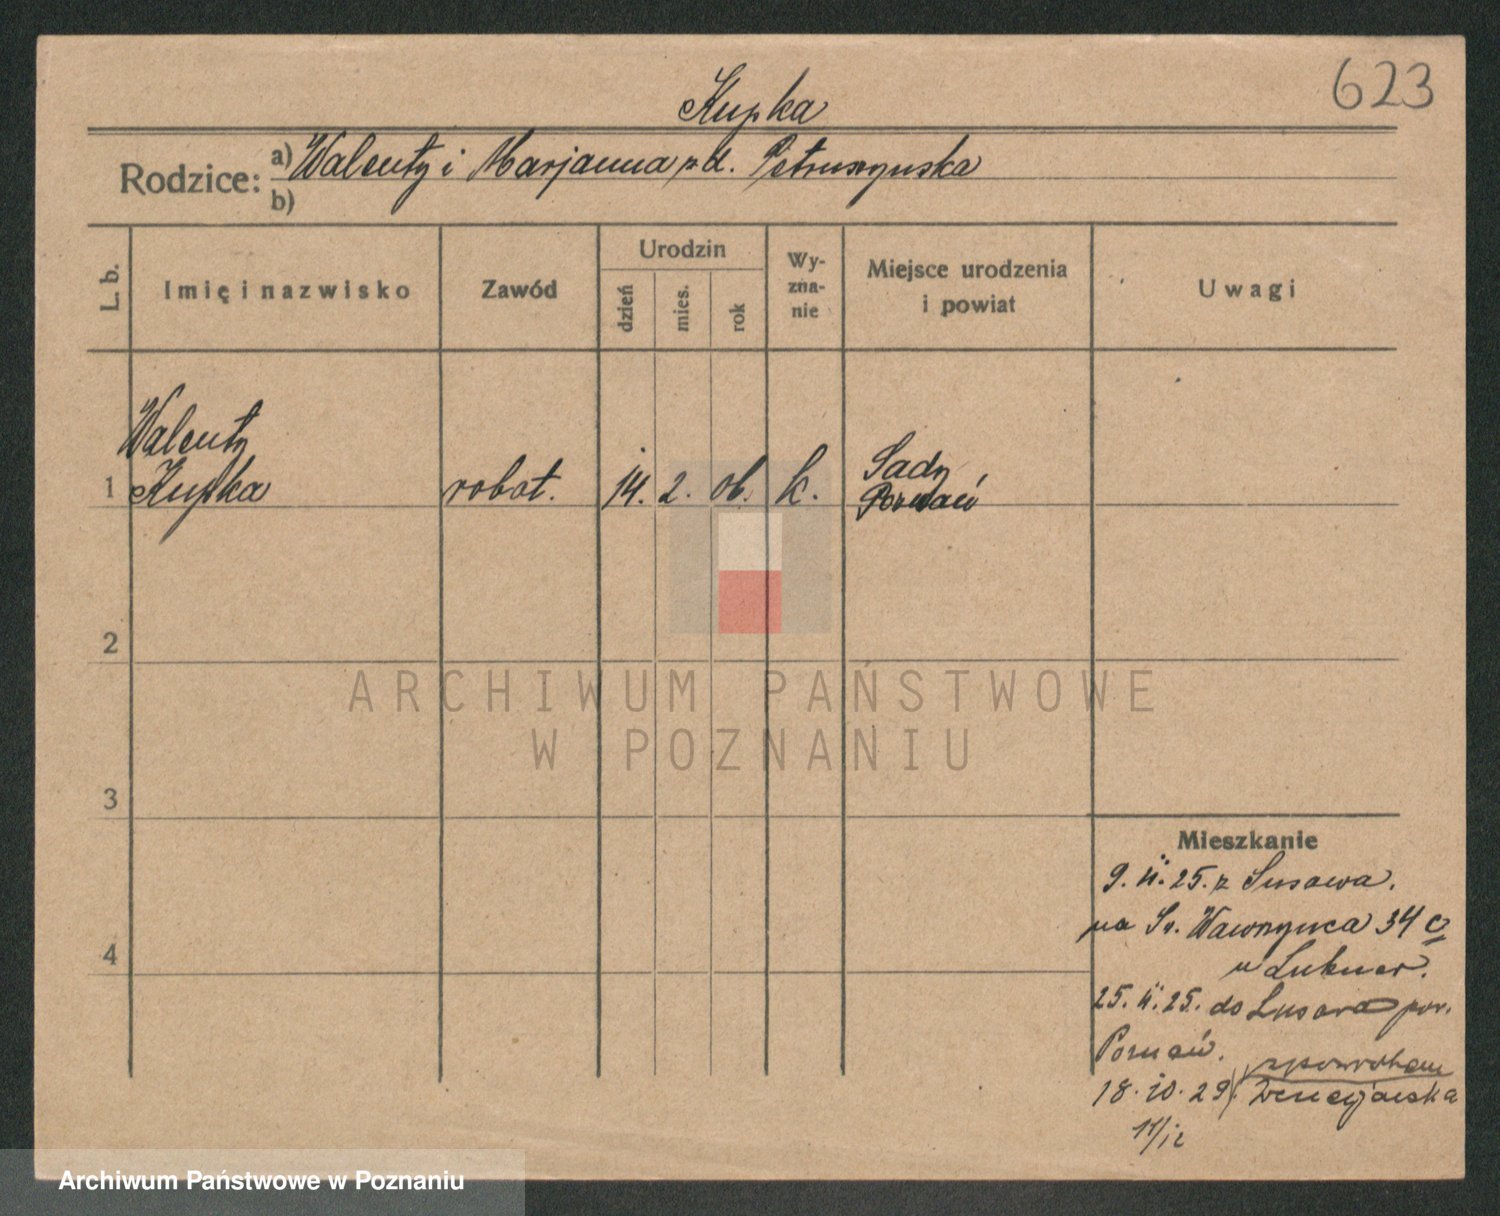 623
Kupka
Rodzice:
a) Walenty i Marjanna z d. Petruszynska
b)
L. b.
Imię i nazwisko
Zawód
Urodzin
dzień
mies.
rok
Wy-
zna-
nie
Miejsce urodzenia
i powiat
Uwagi
Walenty
1 Kupka robot. 14. 2. 06. k. Sady
Poznań
2
3
4
Mieszkanie
9. II. 25. z
na Sw. Wawrzynca 34 c
u
25. II. 25. do Lusowa pow.
Poznań.
18. 10. 29
Wenecjańska
11/12
ARCHIWUM PAŃSTWOWE
W POZNANIU
Archiwum Państwowe w Poznaniu